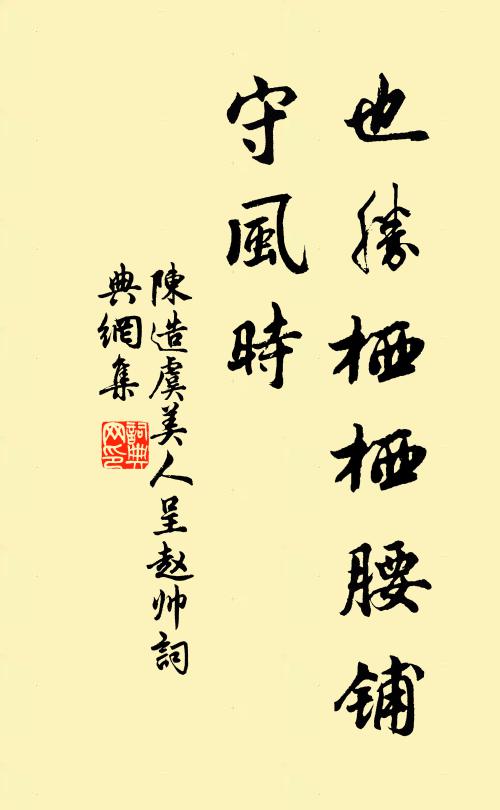 也勝栖栖腰铺
守風時
陳造虞美人呈赵帅詞
典網集
詞典网印